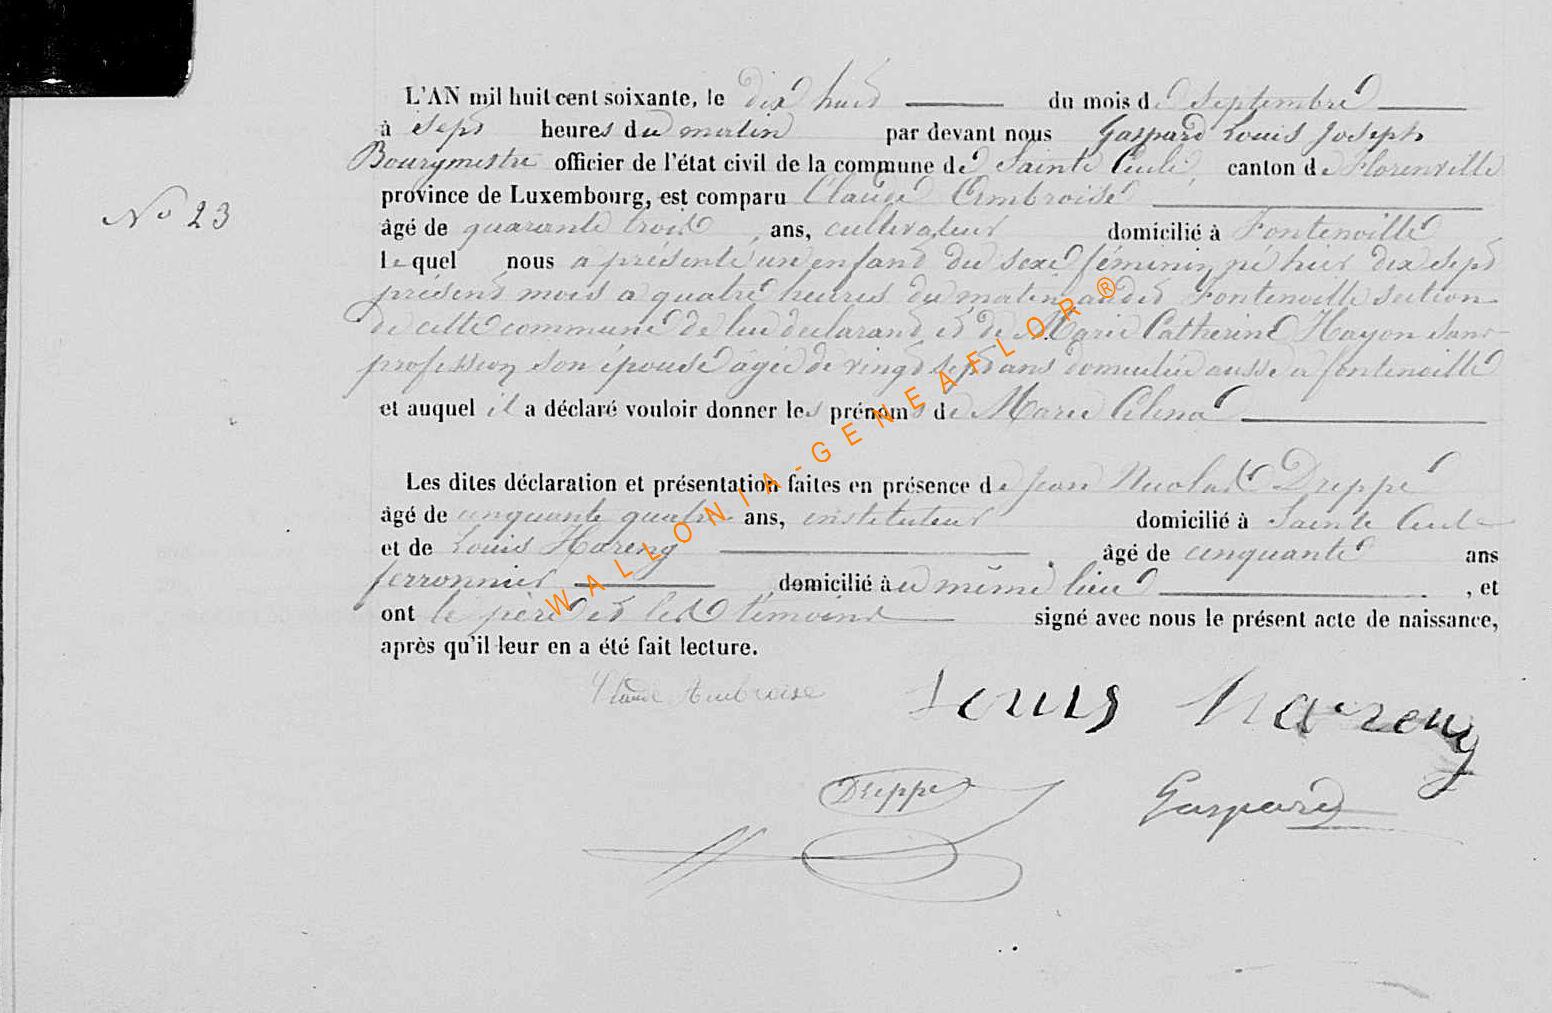 L'AN mil huit cent soixante, le dix huit du mois de Septembre
à Sept heures du matin par devant nous Gaspard Louis Joseph
Bourgmestre officier de l'état civil de la commune de Sainte Cecile, canton de Florenville
province de Luxembourg, est comparu Claude Ambroise
N° 23
âgé de quarante trois ans, cultivateur domicilié à Fontenoille
le quel nous a présenté un enfant du sexe féminin né hier dix sept
présent mois a quatre heures du matin audit Fontenoille section
de cette commune de lui declarant et de Marie Catherine Hayon sans
profession son épouse âgée de vingt sept ans domiciliée aussi a fontenoille
et auquel il a déclaré vouloir donner les prénoms de Marie Celina
Les dites déclaration et présentation faites en présence de Jean Nicolas Dreppe
âgé de cinquante quatre ans, instituteur domicilié à Sainte Cecile
et de Louis Hareng âgé de cinquante ans
ferronnier domicilié à u même lieu , et
ont le père et les témoins signé avec nous le présent acte de naissance,
après qu'il leur en a été fait lecture.
Claude Ambroise Louis hareng
Dreppe Gaspard
WALLONIA-GENEAFLOR®